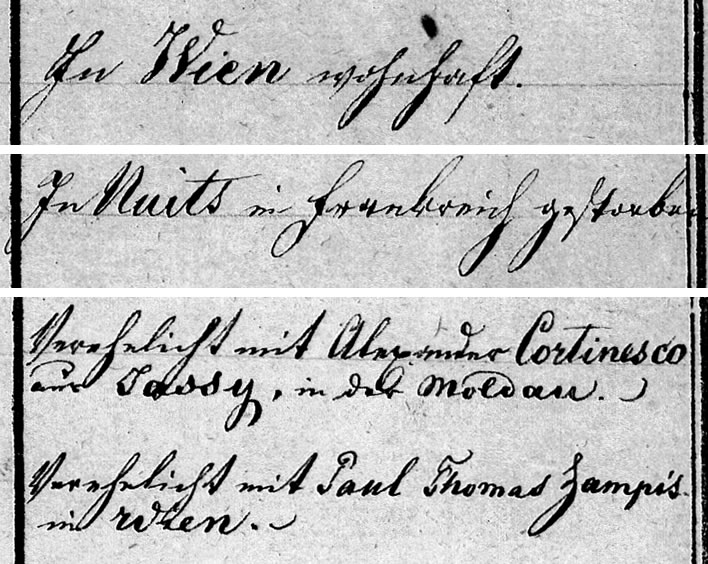 In Wien wohnhaft.
In Nuits in Frankreich gestorben
Verehelicht mit Alexander Cortinesco
aus Jassy, in der Moldau.
Verehelicht mit Paul Thomas Zampis.
in Wien.